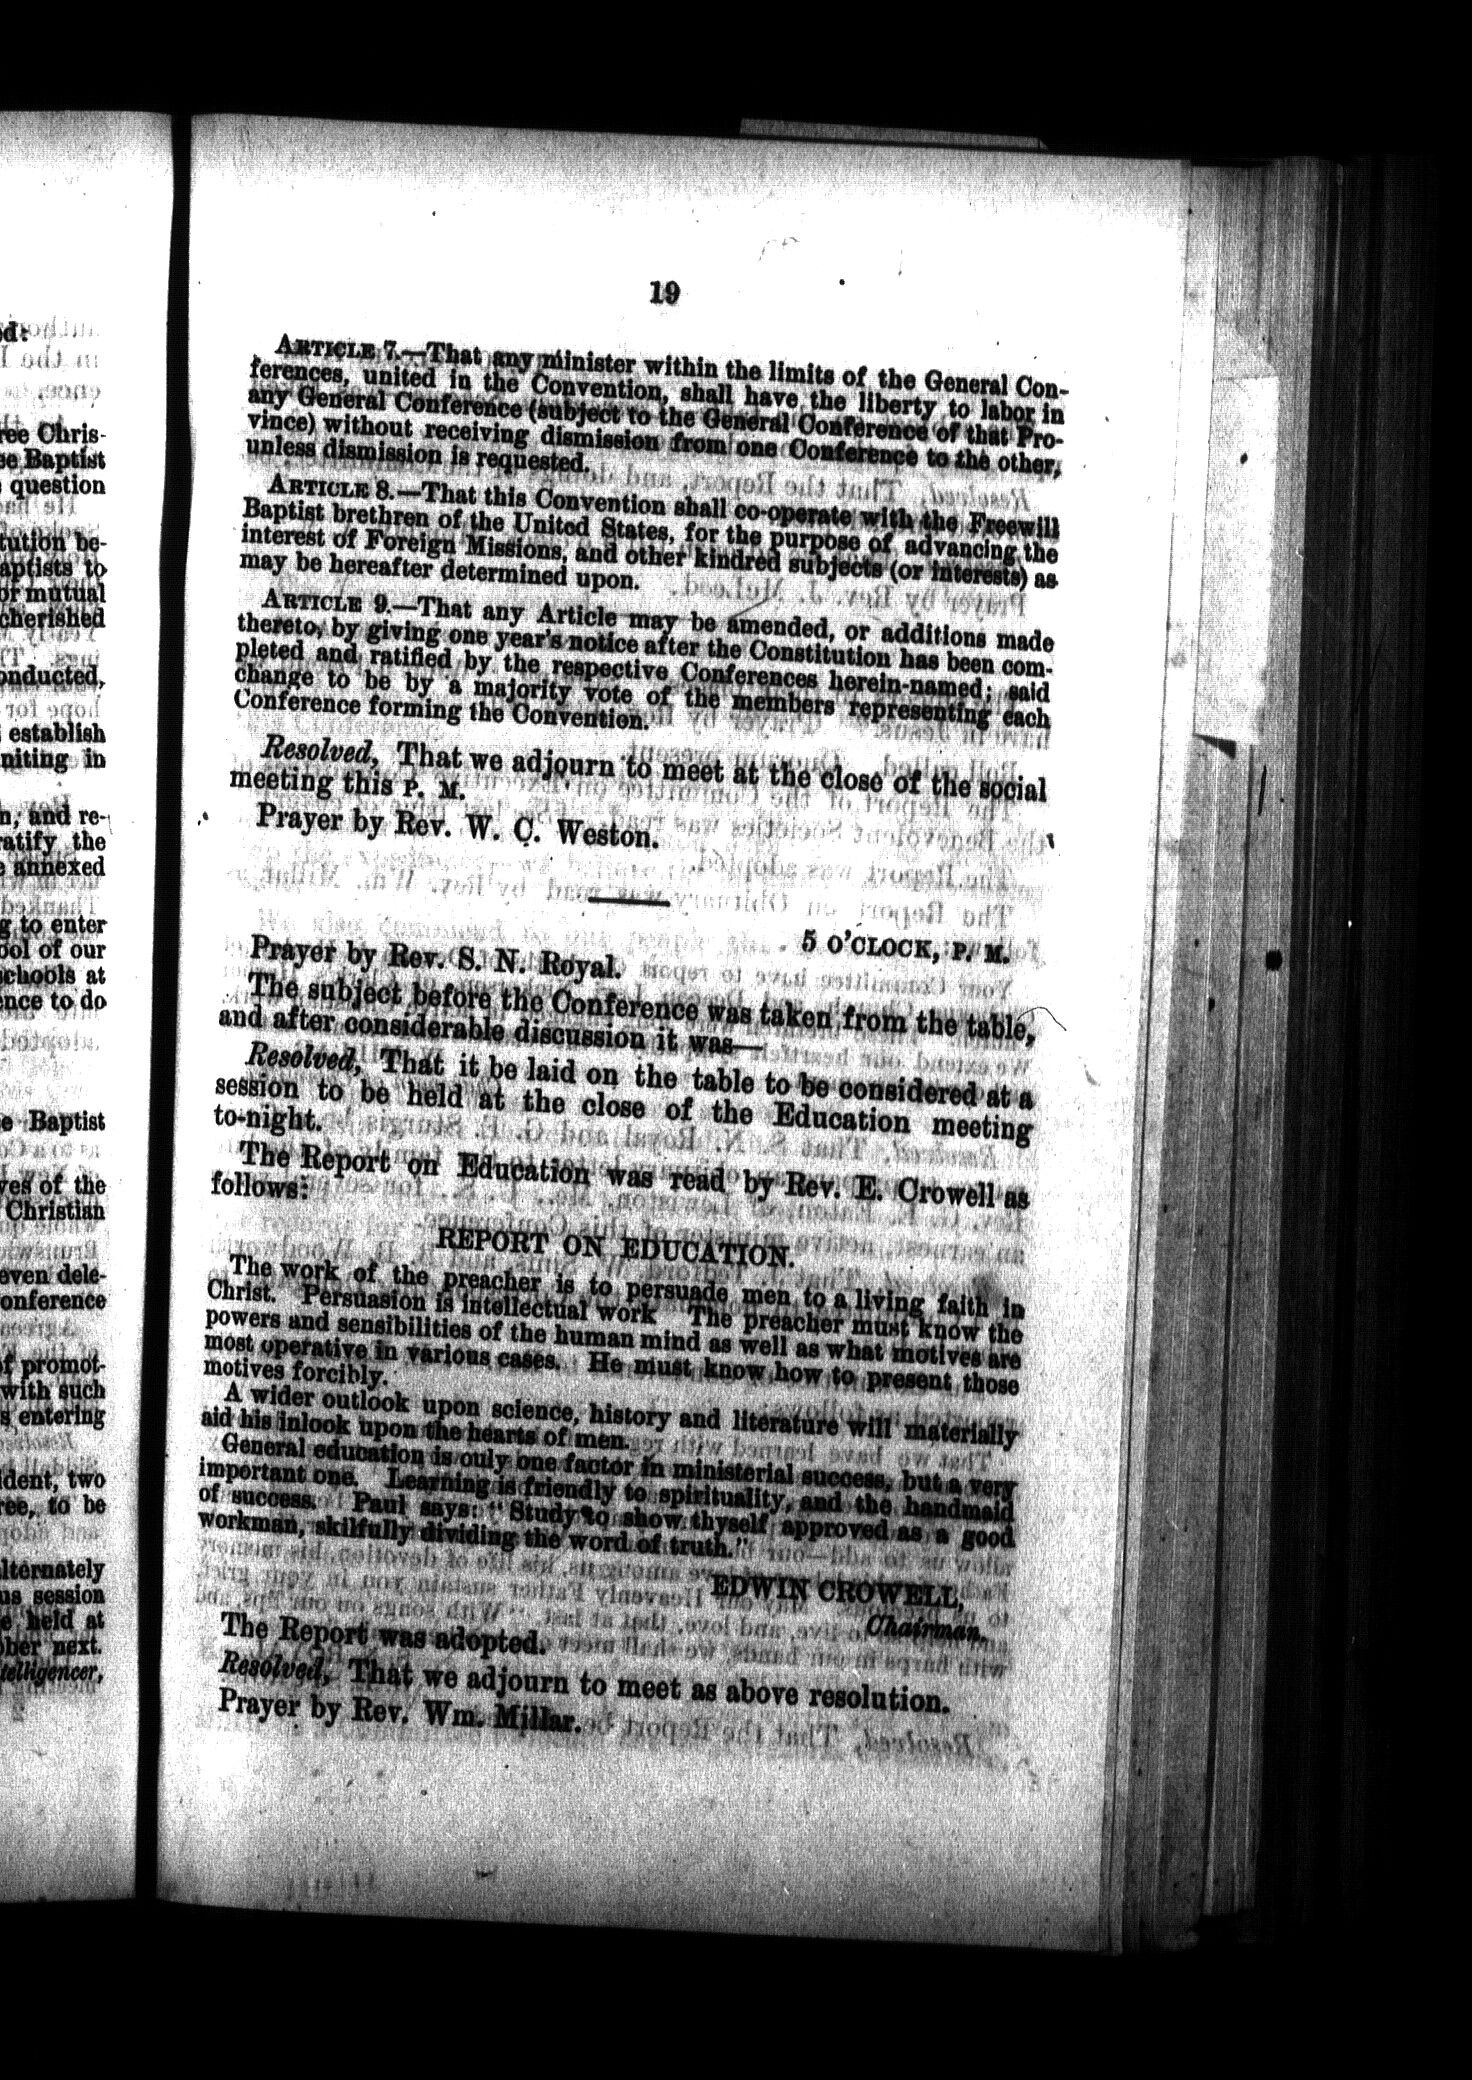 19
ARTICLE 7.—That any minister within the limits of the General Con-
ferences, united in the Convention, shall have the liberty to labor in
any General Conference (subject to the General Conference of that Pro-
vince) without receiving dismission from one Conference to the other,
unless dismission is requested.
ARTICLE 8.—That this Convention shall co-operate with the Freewill
Baptist brethren of the United States, for the purpose of advancing the
interest of Foreign Missions, and other kindred subjects (or interests) as
may be hereafter determined upon.
ARTICLE 9.—That any Article may be amended, or additions made
thereto, by giving one year's notice after the Constitution has been com-
pleted and ratified by the respective Conferences herein-named; said
change to be by a majority vote of the members representing each
Conference forming the Convention.
Resolved, That we adjourn to meet at the close of the social
meeting this P. M.
Prayer by Rev. W. C. Weston.
5 O'CLOCK, P. M.
Prayer by Rev. S. N. Royal.
The subject before the Conference was taken from the table,
and after considerable discussion it was—
Resolved, That it be laid on the table to be considered at a
session to be held at the close of the Education meeting
to-night.
The Report on Education was read by Rev. E. Crowell as
follows:
REPORT ON EDUCATION.
The work of the preacher is to persuade men to a living faith in
Christ. Persuasion is intellectual work The preacher must know the
powers and sensibilities of the human mind as well as what motives are
most operative in various cases. He must know how to present those
motives forcibly.
A wider outlook upon science, history and literature will materially
aid his inlook upon the hearts of men.
General education is only one factor in ministerial success, but a very
important one. Learning is friendly to spirituality, and the handmaid
of success. Paul says: "Study to show thyself approved as a good
workman, skilfully dividing the word of truth."
EDWIN CROWELL,
Chairman.
The Report was adopted.
Resolved, That we adjourn to meet as above resolution.
Prayer by Rev. Wm. Millar.